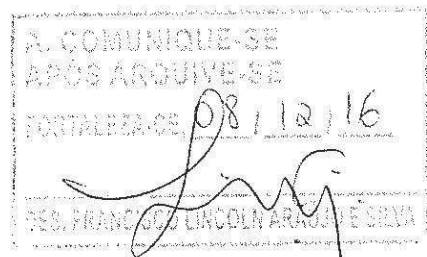 A. COMUNIQUE-SE
APÓS ARQUIVE-SE
FORTALEZA-CE, 08, 12, 16
DES. FRANCISCO LINCOLN ARAÚJO E SILVA